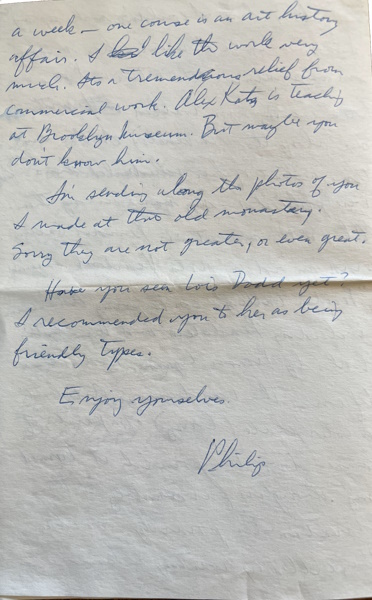 a week — one course is an art history
affair. I like the work very
much. Its a tremendous relief from
commercial work. Alex Katz is teaching
at Brooklyn Museum. But maybe you
don't know him.
I'm sending along the photos of you
I made at that old monastary.
Sorry they are not greater, or even great.
Have you seen Lois Dodd yet?
I recommended you to her as being
friendly types.
Enjoy yourselves.
Philip